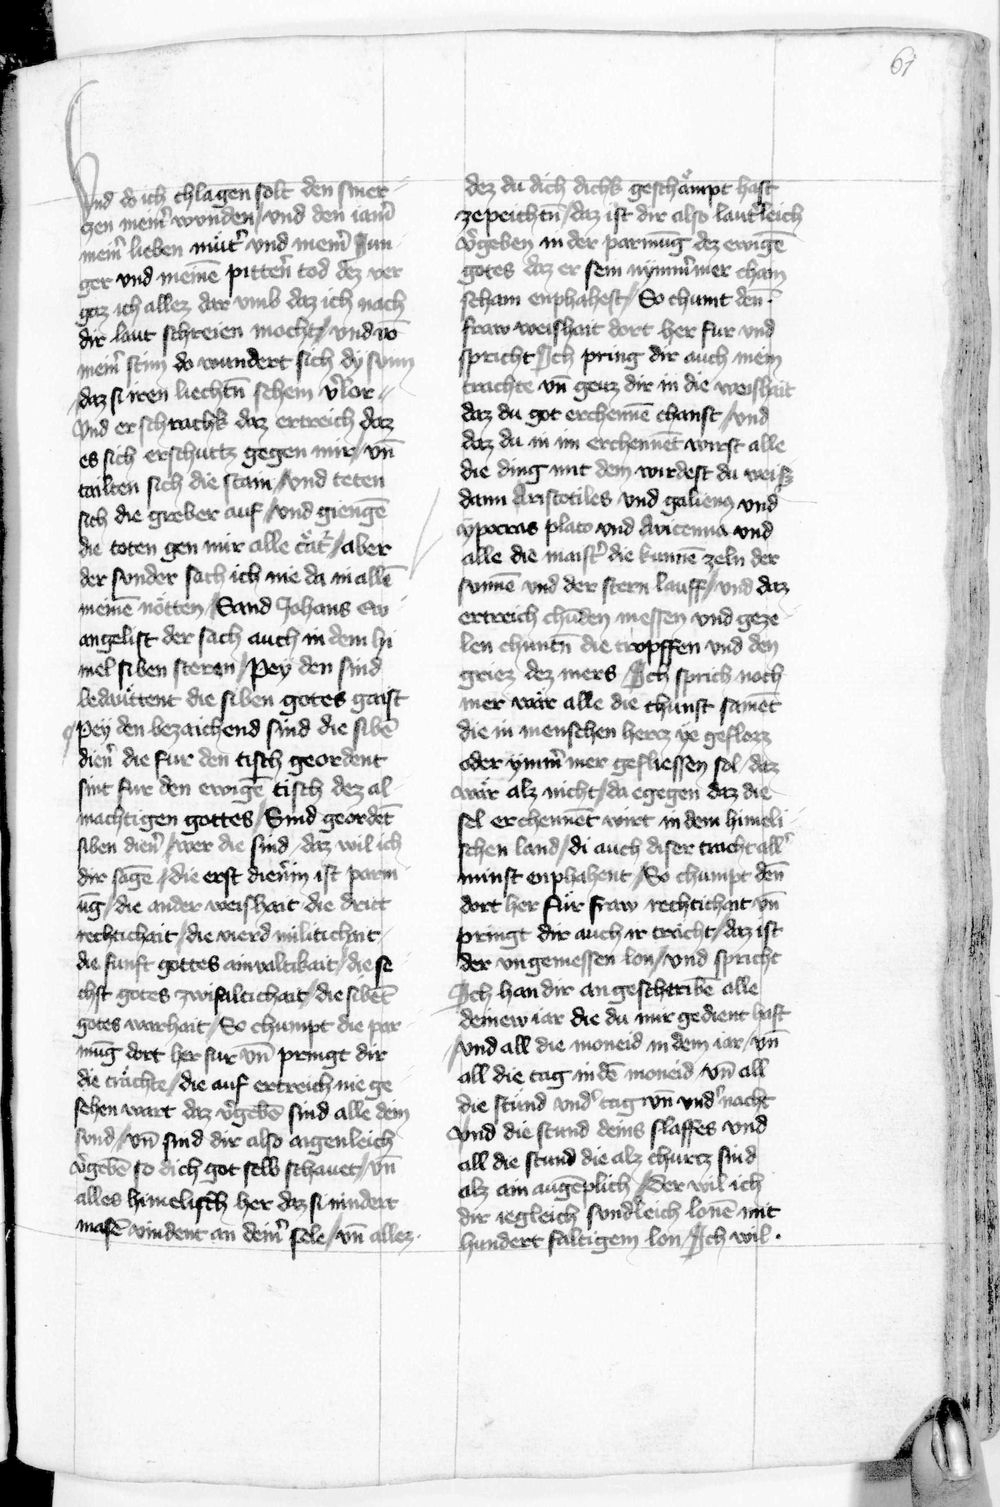 61
Vnd do ich chlagen solt den smer-
czen meinr̄ wunden / vnd den iamr̄
meinr̄ lieben mütr̄ vnd meinr̄ Jun-
ger vnd meinē pittern̄ tod dez ver
gaz ich allez dar vmb daz ich nach
dir laut schreien mocht / vnd vō
meinr̄ stim do wundert sich dy sunn
daz si iren liechtn̄ schein v̄lor
Vnd erschrachk daz ertreich daz
es sich erschuttz gegen mir / vn̄
tailten sich die stain / vnd teten
sich die greber auf / vnd giengē
die toten gen mir alle tät̄ / aber
der sunder sach ich nie da in allē
meinen nötten / Sand Johans Ew
angelist der sach auch in dem hi
mel siben steren / Pey den sind
bedäwttent die siben gotes gaist
Pey den bezaichend sind die sibē
dien̄ die fur den tisch geordent
sint fur den ewigē tisch dez al
machtigen gottes / Sind geordēt
siben dien̄ / wer die sind daz wil ich
dir sagē / die erst dien̄im ist parm
ūg / die ander weishait die dritt
rechtichait / die vierd militichait
die funft gottes ainualtikait / die se
chst gotes zwifaltichait / die sibēt
gotes warhait / So chumpt die par
mūg dort her fur vn̄ pringt dir
die trächte / die auf ertreich nie ge
sehen wart daz v̄gebē sind alle dein
sund / vn̄ sind dir also aigenleich
v̄gebē so dich got selb schauet / vn̄
alles himelisch her daz si nindert
masē vindent an deinr̄ sele / vn̄ allez
dez du dich dichk geschämpt hast
zepeichtn̄ / daz ist dir also lautterleich
v̄geben in der parmūg dez ewigē
gotes daz er sein nymm̄mer chain
scham enphahest / So chumt den
fraw weishait dort her fur vnd
spricht Jch pring dir auch mein
trachte vn̄ geuz dir in die weishait
daz du got erchennē chanst / vnd
daz du in im erchennēt wirst alle
die ding mit dem wirdest du weisz
dann Aristotiles vnd galienus vnd
ypocras plato vnd Auicenna vnd
alle die maistr̄ die kunnē zeln der
sunnē vnd der stern lauff / vnd daz
ertreich chūden messen vnd geze
len chuntn̄ die tropffen vnd den
griez dez mers / Jch sprich noch
mer wär alle die chunst samēt
die in menschen hercz ye geflozz
oder ymm̄mer gefliessen sol daz
wär alz nicht / da egegen daz die
sel erchennēt wirt in dem himeli
schen land / di auch diser tracht allr̄
minst enphahent / So chumpt dēn
dort her für fraw rechtichait vn̄
pringt dir auch ir tracht / daz ist
der vngemessen lon / vnd spricht
Jch han dir angeschribē alle
deinew iar die du mir gedient hast
vnd all die moneid in dem iar / vn̄
all die tag in dē moneid vn̄ all
die stund vndr̄ tag vn̄ vndr̄ nacht
Vnd die stund deins slaffes vnd
all die stund die alz churcz sind
alz ain augēplich / Der wil ich
dir iegleich sundleich lonē mit
hundert faltigem lon / Jch wil